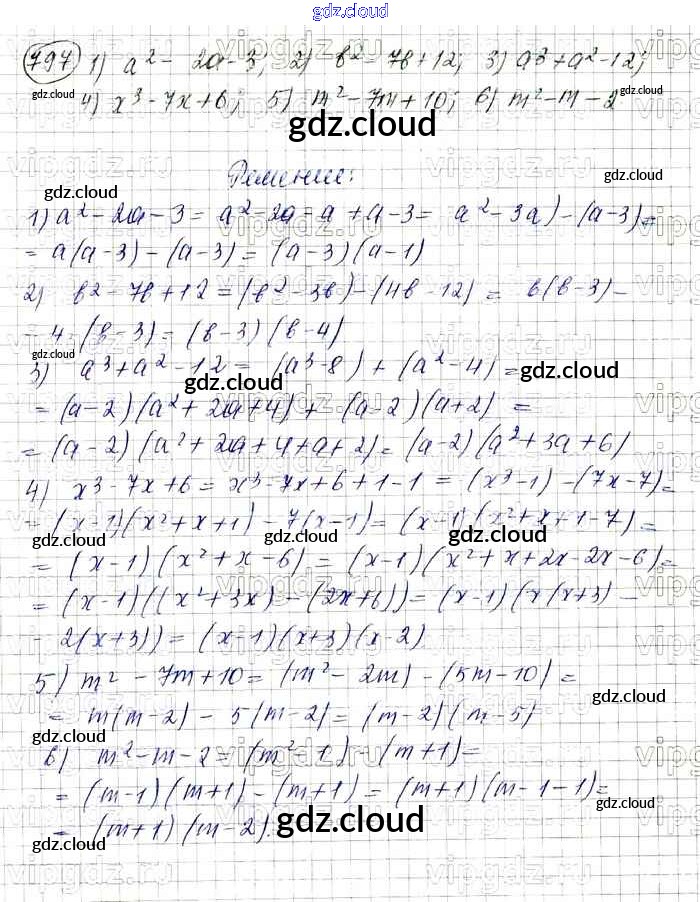 gdz.cloud
797 1) a² - 2a - 3; 2) b² - 7b + 12; 3) a³ + a² - 12;
gdz.cloud
4) x³ - 7x + 6; 5) m² - 7m + 10; 6) m² - m - 2
gdz.cloud
Решение:
gdz.cloud
gdz.cloud
1) a² - 2a - 3 = a² - 2a - a + a - 3 = a² - 3a) - (a - 3) =
= a(a - 3) - (a - 3) = (a - 3)(a - 1)
gdz.cloud
2) b² - 7b + 12 = (b² - 3b) - (4b - 12) = b(b - 3) -
- 4 (b - 3) = (b - 3)(b - 4)
gdz.cloud
3) a³ + a² - 12 = (a³ - 8) + (a² - 4) =
gdz.cloud gdz.cloud
= (a - 2)(a² + 2a + 4) + (a - 2)(a + 2) =
= (a - 2)(a² + 2a + 4 + a + 2) = (a - 2)(a² + 3a + 6)
4) x³ - 7x + 6 = x³ - 7x + 6 + 1 - 1 = (x³ - 1) - (7x - 7) =
= (x - 1)(x² + x + 1) - 7(x - 1) = (x - 1)(x² + x + 1 - 7) =
gdz.cloud gdz.cloud gdz.cloud
= (x - 1)(x² + x - 6) = (x - 1)(x² + x + 2x - 2x - 6) =
= (x - 1)((x² + 3x) - (2x + 6)) = (x - 1)(x(x + 3) -
- 2(x + 3)) = (x - 1)(x + 3)(x - 2)
gdz.cloud gdz.cloud
5) m² - 7m + 10 = (m² - 2m) - (5m - 10) =
gdz.cloud
= m(m - 2) - 5(m - 2) = (m - 2)(m - 5)
gdz.cloud
6) m² - m - 2 = (m² - 1) - (m + 1) =
gdz.cloud
= (m - 1)(m + 1) - (m + 1) = (m + 1)(m - 1 - 1) =
gdz.cloud
= (m + 1)(m - 2).
gdz.cloud
gdz.cloud
vipgdz.ru